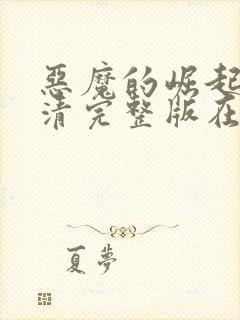 恶魔的崛起
清完整版在
夏梦